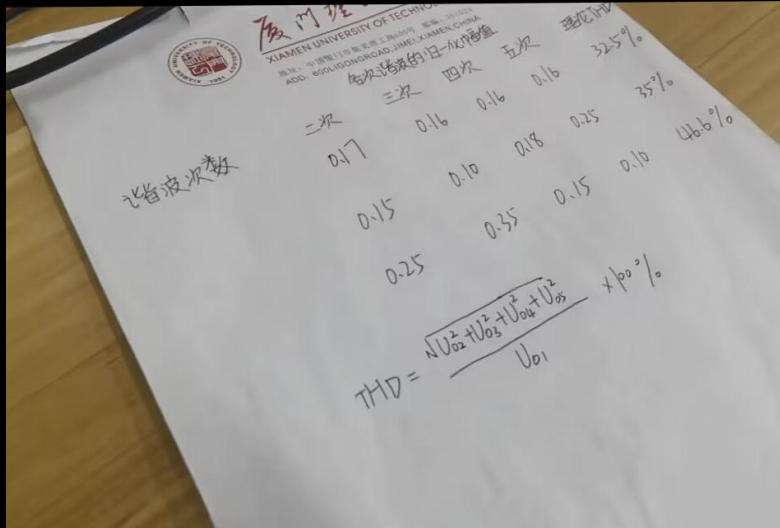 XIAMEN UNIVERSITY OF TECHNO
ADD: 600LIGONGROAD,JIMEI,XIAMEN,CHINA
各次谐波的归一化幅值
谐波次数 二次 三次 四次 五次 理论THD
0.17 0.16 0.16 0.16 32.5%
0.15 0.10 0.18 0.25 35%
0.25 0.35 0.15 0.10 46.6%
THD = √U₀₂²+U₀₃²+U₀₄²+U₀₅² / U₀₁ ×100%